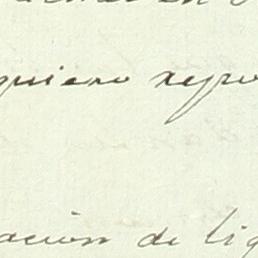 quiero repro
ación de lig